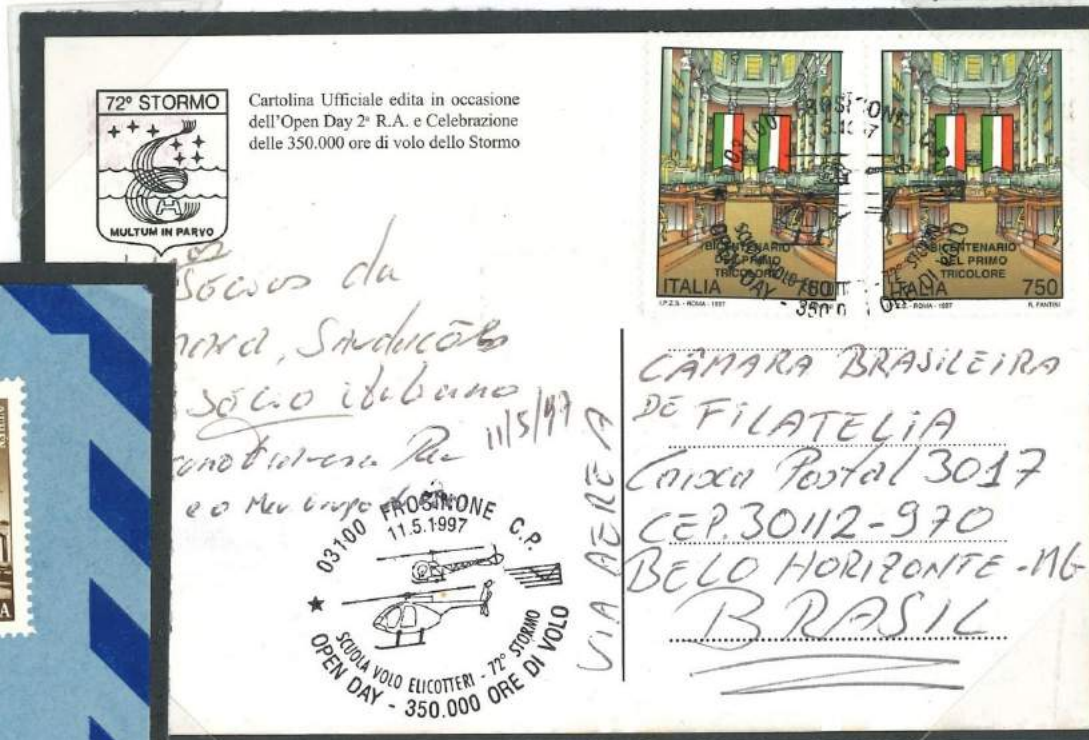 72º STORMO
MULTUM IN PARVO
Cartolina Ufficiale edita in occasione
dell'Open Day 2ª R.A. e Celebrazione
delle 350.000 ore di volo dello Stormo
BICENTENARIO
DEL PRIMO
TRICOLORE
ITALIA 750
I.P.Z.S. - ROMA - 1997
BICENTENARIO
DEL PRIMO
TRICOLORE
ITALIA 750
I.P.Z.S. - ROMA - 1997 R. FANTINI
Sócios da
sócio italiano
11/5/97
e o Meu grupo
03100 FROSINONE C.P.
11.5.1997
SCUOLA VOLO ELICOTTERI - 72º STORMO
OPEN DAY - 350.000 ORE DI VOLO
VIA AEREA
CÂMARA BRASILEIRA
DE FILATELIA
Caixa Postal 3017
CEP. 30112-970
BELO HORIZONTE - MG
BRASIL